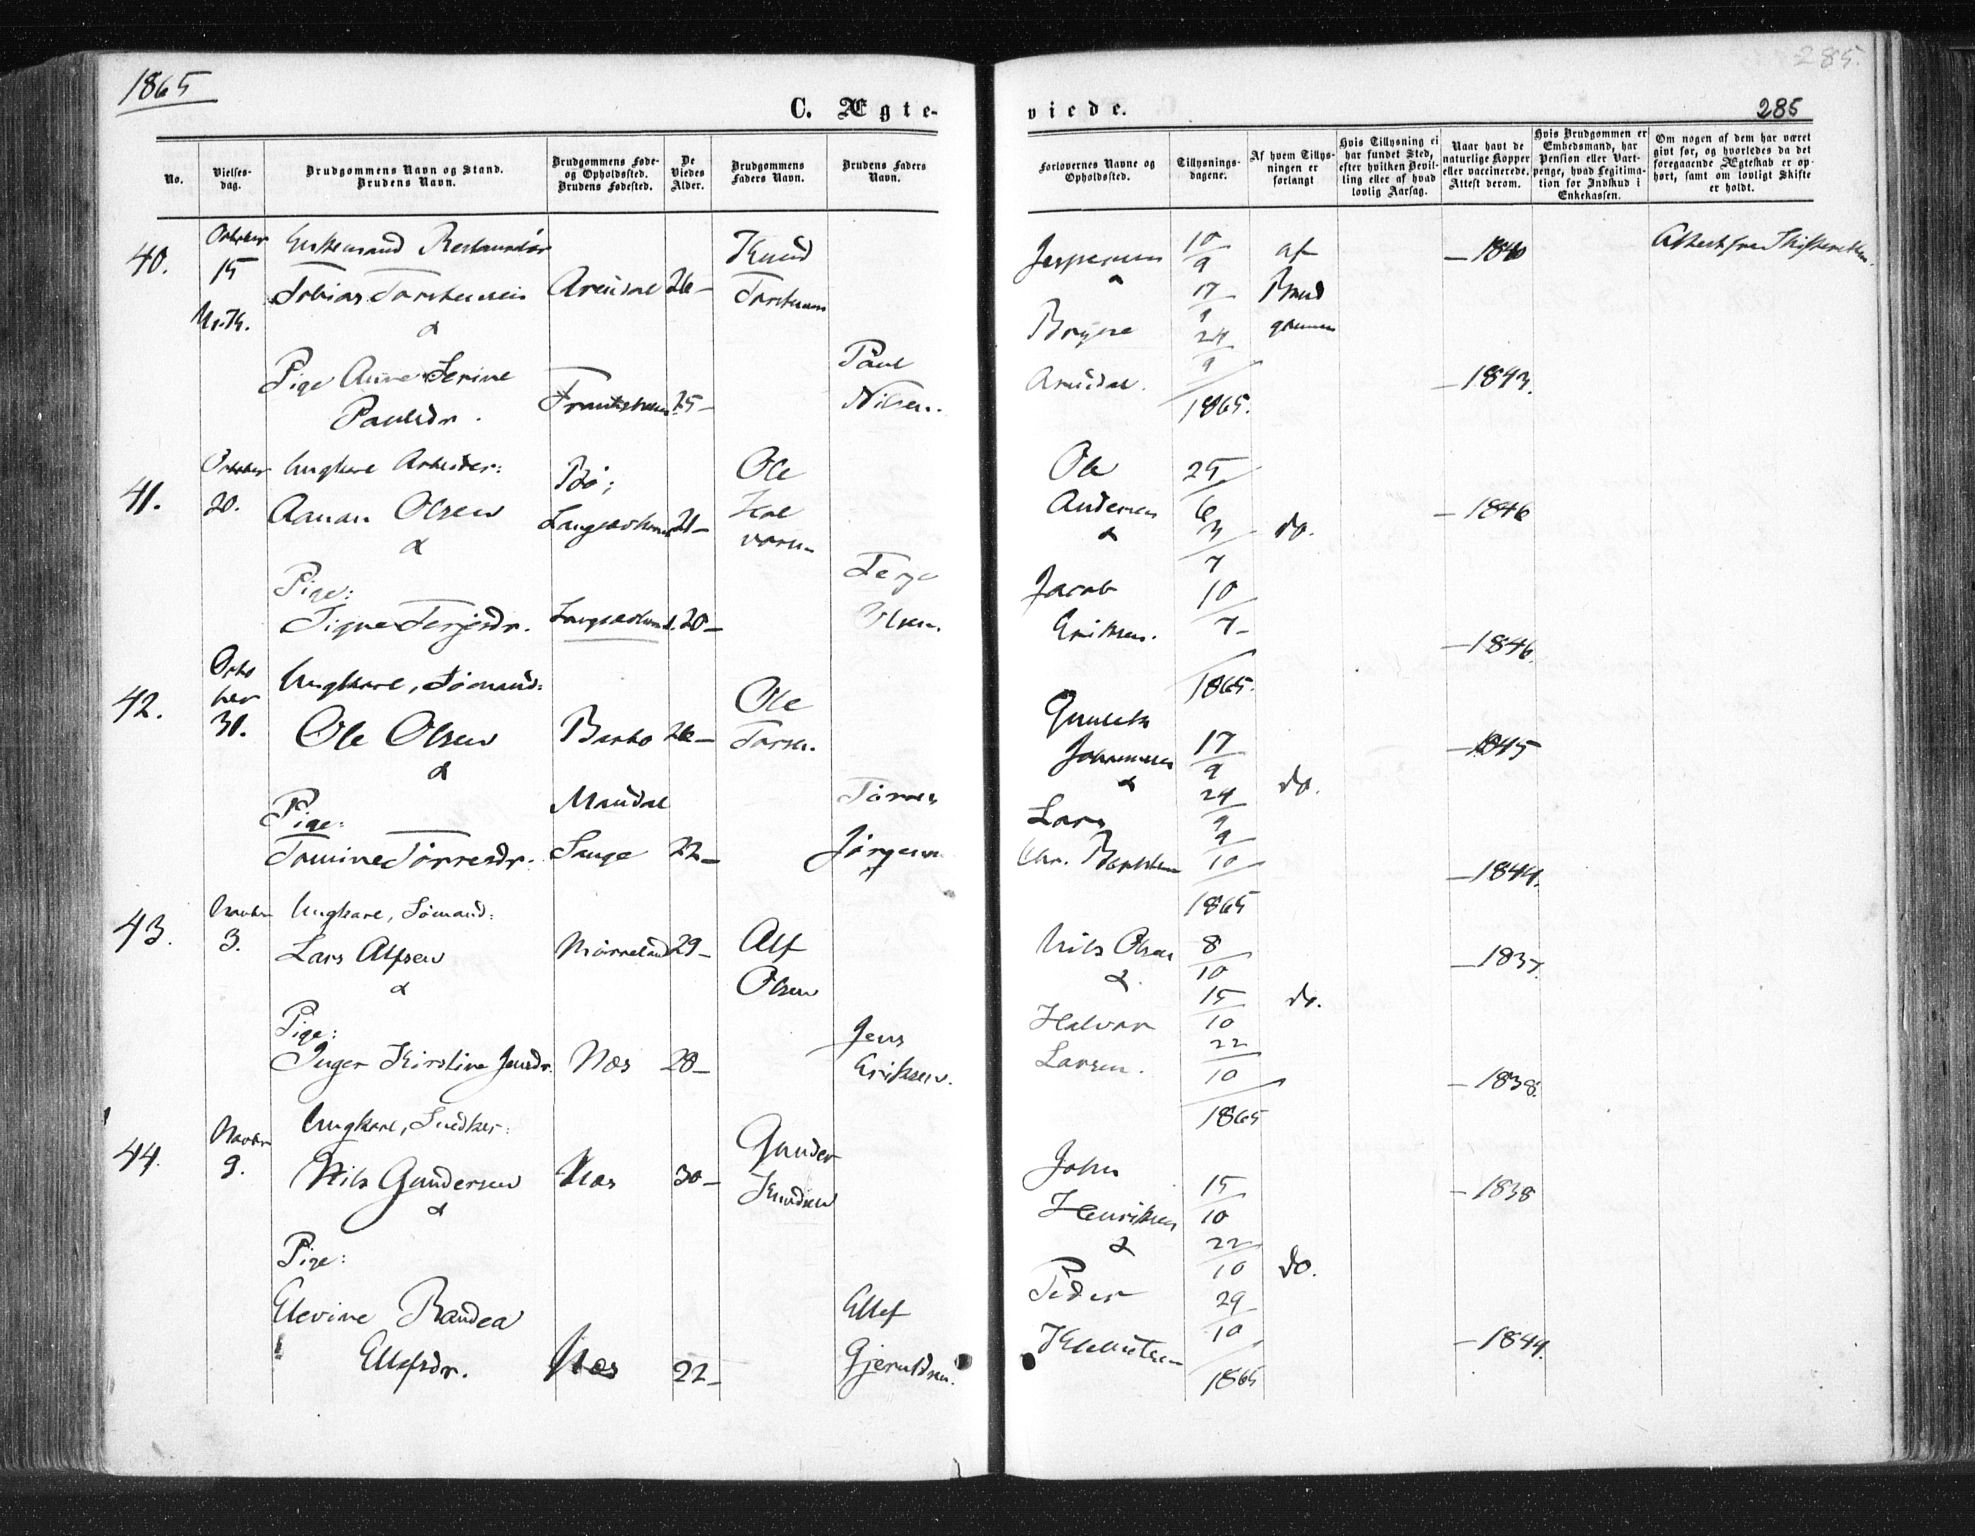 1865
285.
C. Ægte-
viede.
285
No.
Vielses-
dag.
Brudgommens Navn og Stand.
Brudens Navn.
Brudgommens Føde-
og Opholdssted.
Brudens Fødested.
De
Viedes
Alder.
Brudgommens
Faders Navn.
Brudens Faders
Navn.
Forlovernes Navne og
Opholdssted.
Tillysnings-
dagene.
Af hvem Tillys-
ningen er
forlangt
Hvis Tillysning ei
har fundet Sted,
efter hvilken Bevil-
ling eller af hvad
lovlig Aarsag.
Naar havt de
naturlige Kopper
eller vaccinerede.
Attest derom.
Hvis Brudgommen er
Embedsmand, har
Pension eller Vart-
penge, hvad Legitima-
tion for Indskud i
Enkekassen.
Om nogen af dem har været
givt før, og hvorledes da det
foregaaende Ægteskab er op-
hørt, samt om lovligt Skifte
er holdt.
40.
October
15
Enkemand Restauratør
Tobias Torstensen
&
Arendal
26-
Knud
Torstensen
Pige Anne Serine
Paulsdr.
25-
Paul
Nilsen.
Jespersen
&
Arendal.
10/9
17/9
24/9
1865.
af
Brud
gommen
-1840
-1843.
Attest fra Skifteretten.
41.
October
20.
Ungkarl Arbeider:
Aanon Olsen
&
Bø;
21-
Ole
Hal
vorsen
Pige:
Signe Terjesdr.
20-
Terje
Olsen.
Ole
Andersen
&
Jacob
Eriksen.
25/6
3/7
10/7
1865.
do.
-1846
-1846.
42.
Octo
ber
31.
Ungkarl, Sømand:
Ole Olsen
&
Barbo
26-
Ole
Pige:
Tomine Tørresdr.
Mandal
Lange
22-
Tørres
Jørgensen
Johannesen
&
Lars
Chr.
17/9
24/9
9/10
1865
do.
-1845
-1844.
43.
Novbr
3.
Ungkarl, Sømand:
Lars Alfsen
&
29-
Alf
Olsen
Pige:
Inger Kirstine Jensdr.
Næs
28-
Jens
Eriksen.
Nils Olsen
&
Halvor
Larsen.
8/10
15/10
22/10
1865
do.
-1837.
-1838.
44.
Novbr
9.
Ungkarl, Snedker:
Nils Gundersen
&
Næs
30-
Gunder
Knudsen
Pige:
Elevine Randea
Ellefsdr.
Næs
22-
Ellef
Gjeruldsen.
John
Henriksen
&
Peder
15/10
22/10
29/10
1865
do.
-1838
-1844.